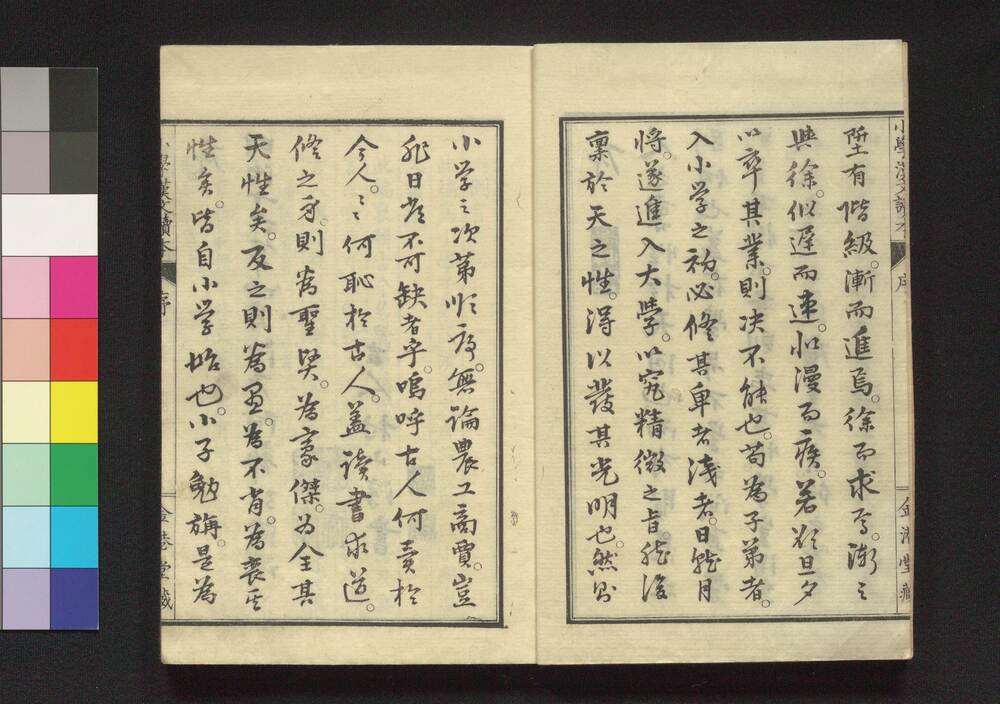 陞有階級。漸而進焉。徐而求焉。漸之
與徐。似遲而速。如漫而疾。若欲旦夕
以卒其業。則决不能也。苟為子弟者。
入小学之初。必修其卑者淺者。日就月
將。遂進入大學。以究精微之旨。然後
稟於天之性。得以發其光明也。然則
小学之次第順序。無論農工商賈。豈
非日常不可缺者乎。嗚呼古人何責於
今人。今人何恥於古人。蓋讀書求道。
修之身。則為聖賢。為豪傑。為全其
天性矣。反之則為愚。為不肖。為喪其
性矣。皆自小学始也。小子勉旃。是為
小學漢文讀本
序
金港堂藏
小學漢文讀本
序
金港堂藏